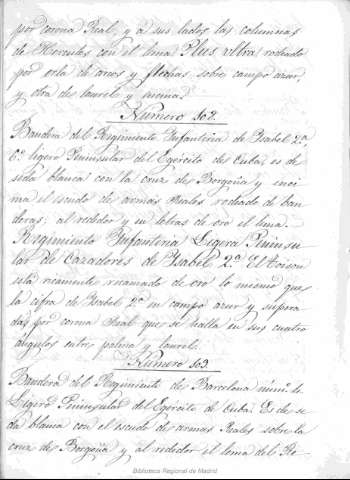 por corona Real, y a sus lados las columnas
de Hercules con el lema Plus Ultra, rodeado
por orla de arcos y flechas sobre campo azur,
y otra de laurel y encina.
Numero 502.
Bandera del Regimiento Infantiria de Ysabel 2ª
6º ligero Peninsular del Egército de Cuba, es de
seda blanca con la cruz de Borgoña y enci
ma el escudo de armas Reales rodeado de ban
deras; al rededor y en letras de oro el lema.
Regimiento Infanteria Ligera Penínsu
lar de Cazadores de Ysabel 2ª El toison
está ricamente recamado de oro lo mismo que
la cifra de Ysabel 2ª en campo azur y supera
das por corona Real que se halla en sus cuatro
angulos entre palma y laurel.
Numero 503.
Bandera del Regimiento de Barcelona núm.
Ligero Peninsular del Egército de Cuba. Es de se
da blanca con el escudo de armas Reales sobre la
cruz de Borgoña y al rededor el lema del Re-
Biblioteca Regional de Madrid